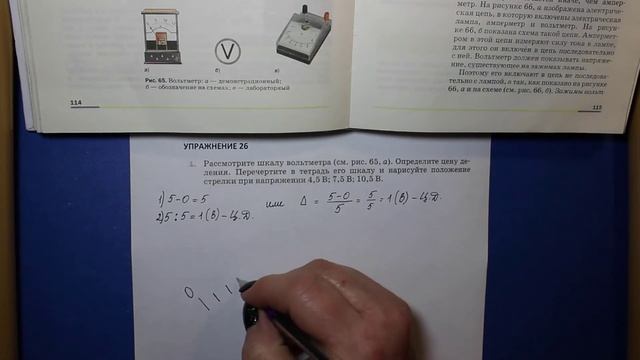 наче, чем ампер-
метр. На рисунке 66, а изображена электриче-
ская цепь, в которую включены электрическая
лампа, амперметр и вольтметр. На рисун-
ке 66, б показана схема такой цепи. Ампермет-
ром в этой цепи измеряют силу тока в лампе,
для этого он включён в цепь последовательно
с ней. Вольтметр должен показывать напряже-
ние, существующее на зажимах лампы.
Поэтому его включают в цепь не последова-
тельно с лампой, а так, как показано на рисунке
66, а и на схеме (см. рис. 66, б). Зажимы вольт-
115
V
а) б) в)
Рис. 65. Вольтметр: а — демонстрационный;
б — обозначение на схемах, в — лабораторный
114
УПРАЖНЕНИЕ 26
1. Рассмотрите шкалу вольтметра (см. рис. 65, а). Определите цену де-
ления. Перечертите в тетрадь его шкалу и нарисуйте положение
стрелки при напряжении 4,5 В; 7,5 В; 10,5 В.
1) 5-0=5 или Δ = 5-0/5 = 5/5 = 1(В) – Ц.Д.
2) 5:5=1(В) – Ц.Д.
0